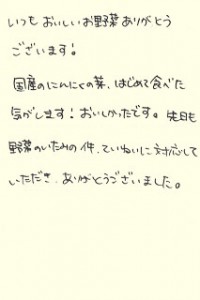 いつも おいしいお野菜ありがとう
ございます!
国産のにんにくの芽、はじめて食べた
気がします! おいしかったです。先日も
野菜のいたみの件、ていねいに対応して
いただき、ありがとうございました。